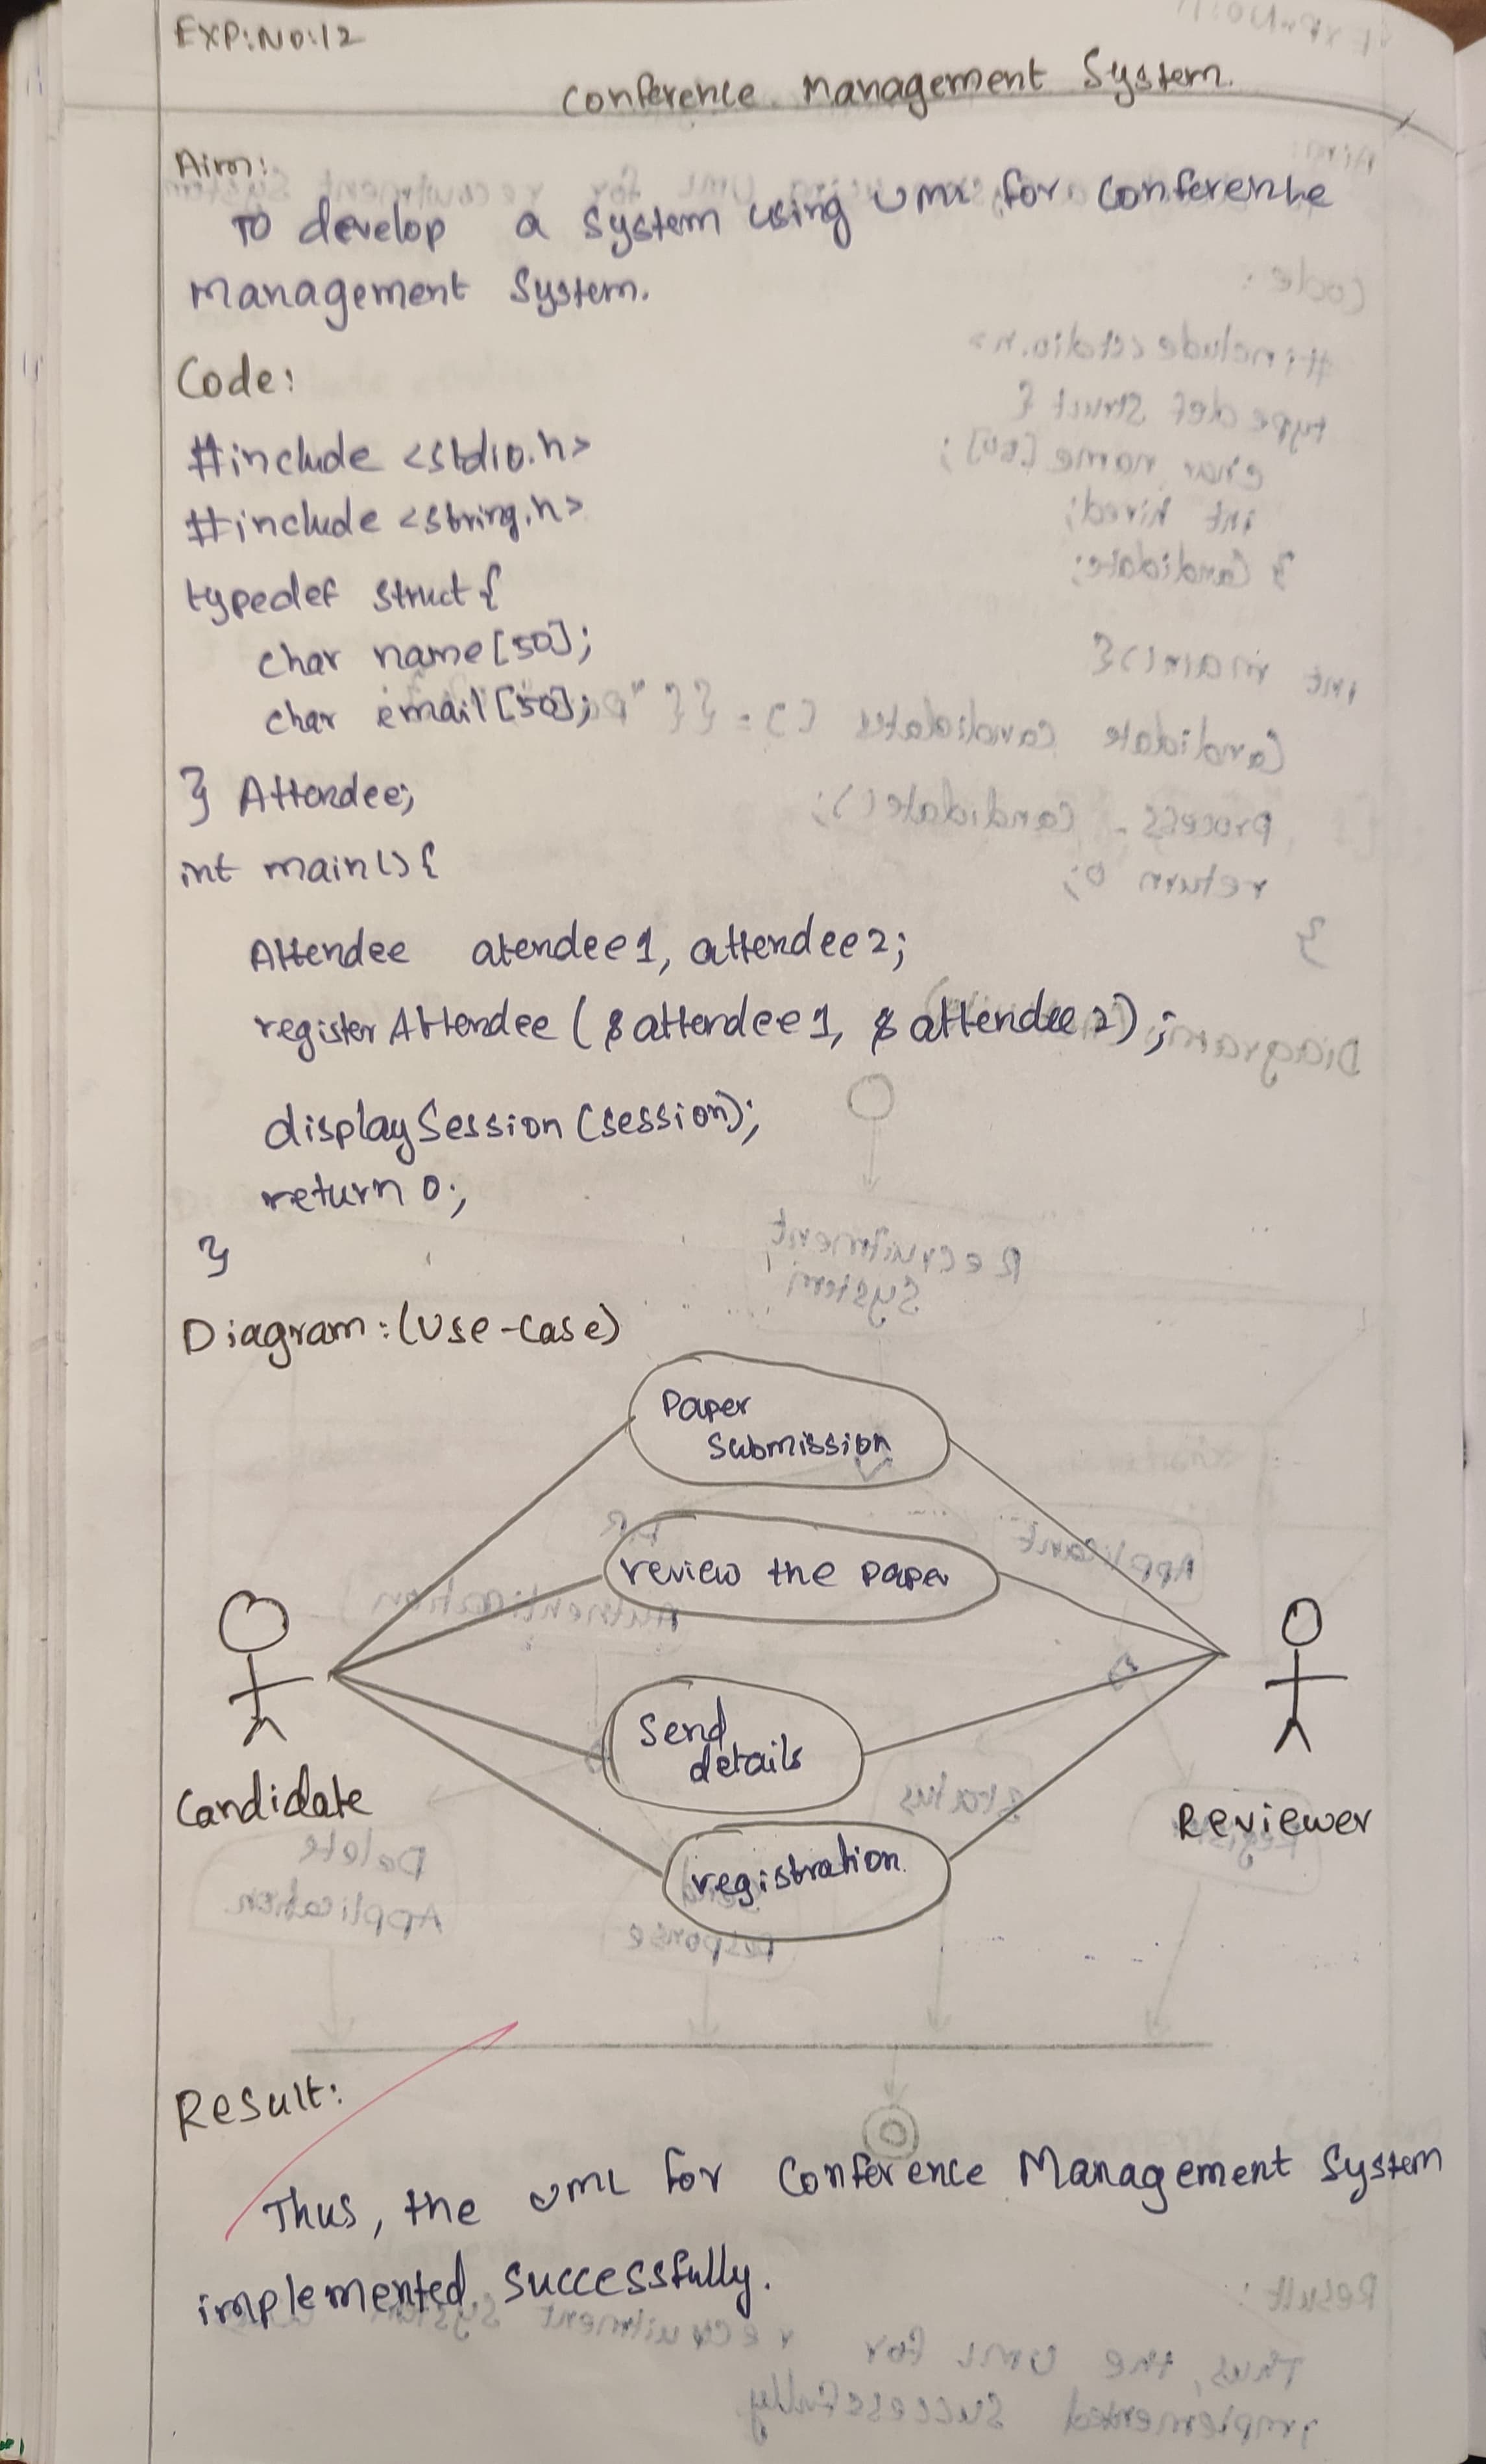 EXP:NO:12
Conference Management System.
Aim:
To develop a System using UML for Conference
Management System.
Code:
#include <stdio.h>
#include <string.h>
typedef struct {
char name[50];
char email[50];
} Attendee;
int main() {
Attendee atendee1, attendee2;
registerAttendee (&attendee1, &attendee2);
displaySession (session);
return 0;
}
Diagram: (Use-Case)
Paper
submission
review the paper
Send
details
Candidate
Reviewer
registration
Result:
Thus, the UML for Conference Management System
implemented successfully.